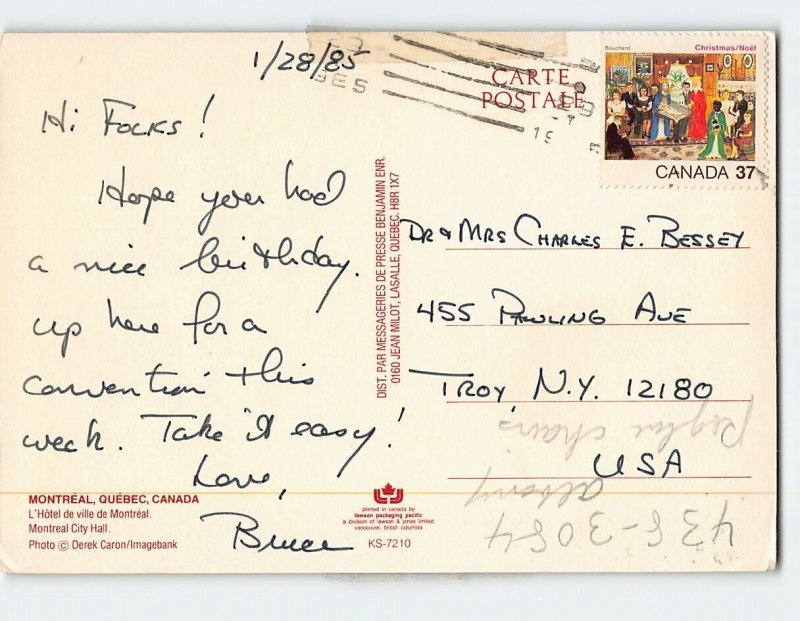 1/28/85
Hi Folks!
Hope you had
a nice birthday.
up here for a
convention this
week. Take it easy!
Love,
Bruce
MONTRÉAL, QUÉBEC, CANADA
L'Hôtel de ville de Montréal.
Montreal City Hall.
Photo © Derek Caron/Imagebank
DIST. PAR MESSAGERIES DE PRESSE BENJAMIN ENR.
0160 JEAN MILOT, LASALLE, QUEBEC. H8R 1X7
printed in canada by
lawson packaging pacific
a division of lawson & jones limited
vancouver, british columbia
KS-7210
CARTE
POSTALE
Bouchard
Christmas/Noël
CANADA 37
DR & MRS CHARLES E. BESSEY
455 PAWLING AVE
TROY, N.Y. 12180
USA
chairs
albany
438-3084